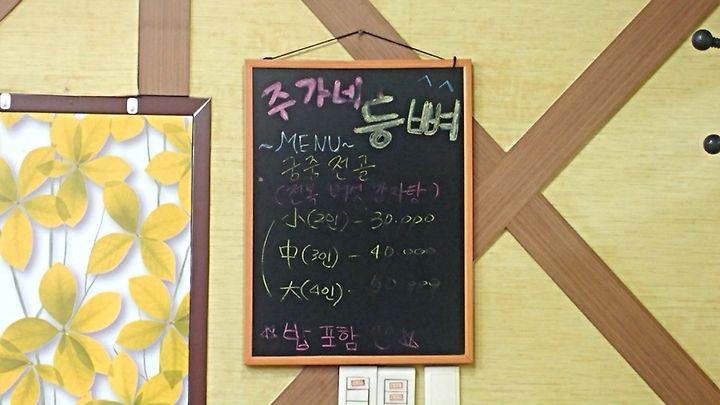 주가네 등뼈
^^
~MENU~
궁중 전골
(전복 버섯 감자탕)
小(2인) - 30.000
中(3인) - 40.000
大(4인) -
☆ 밥 포함 ☆